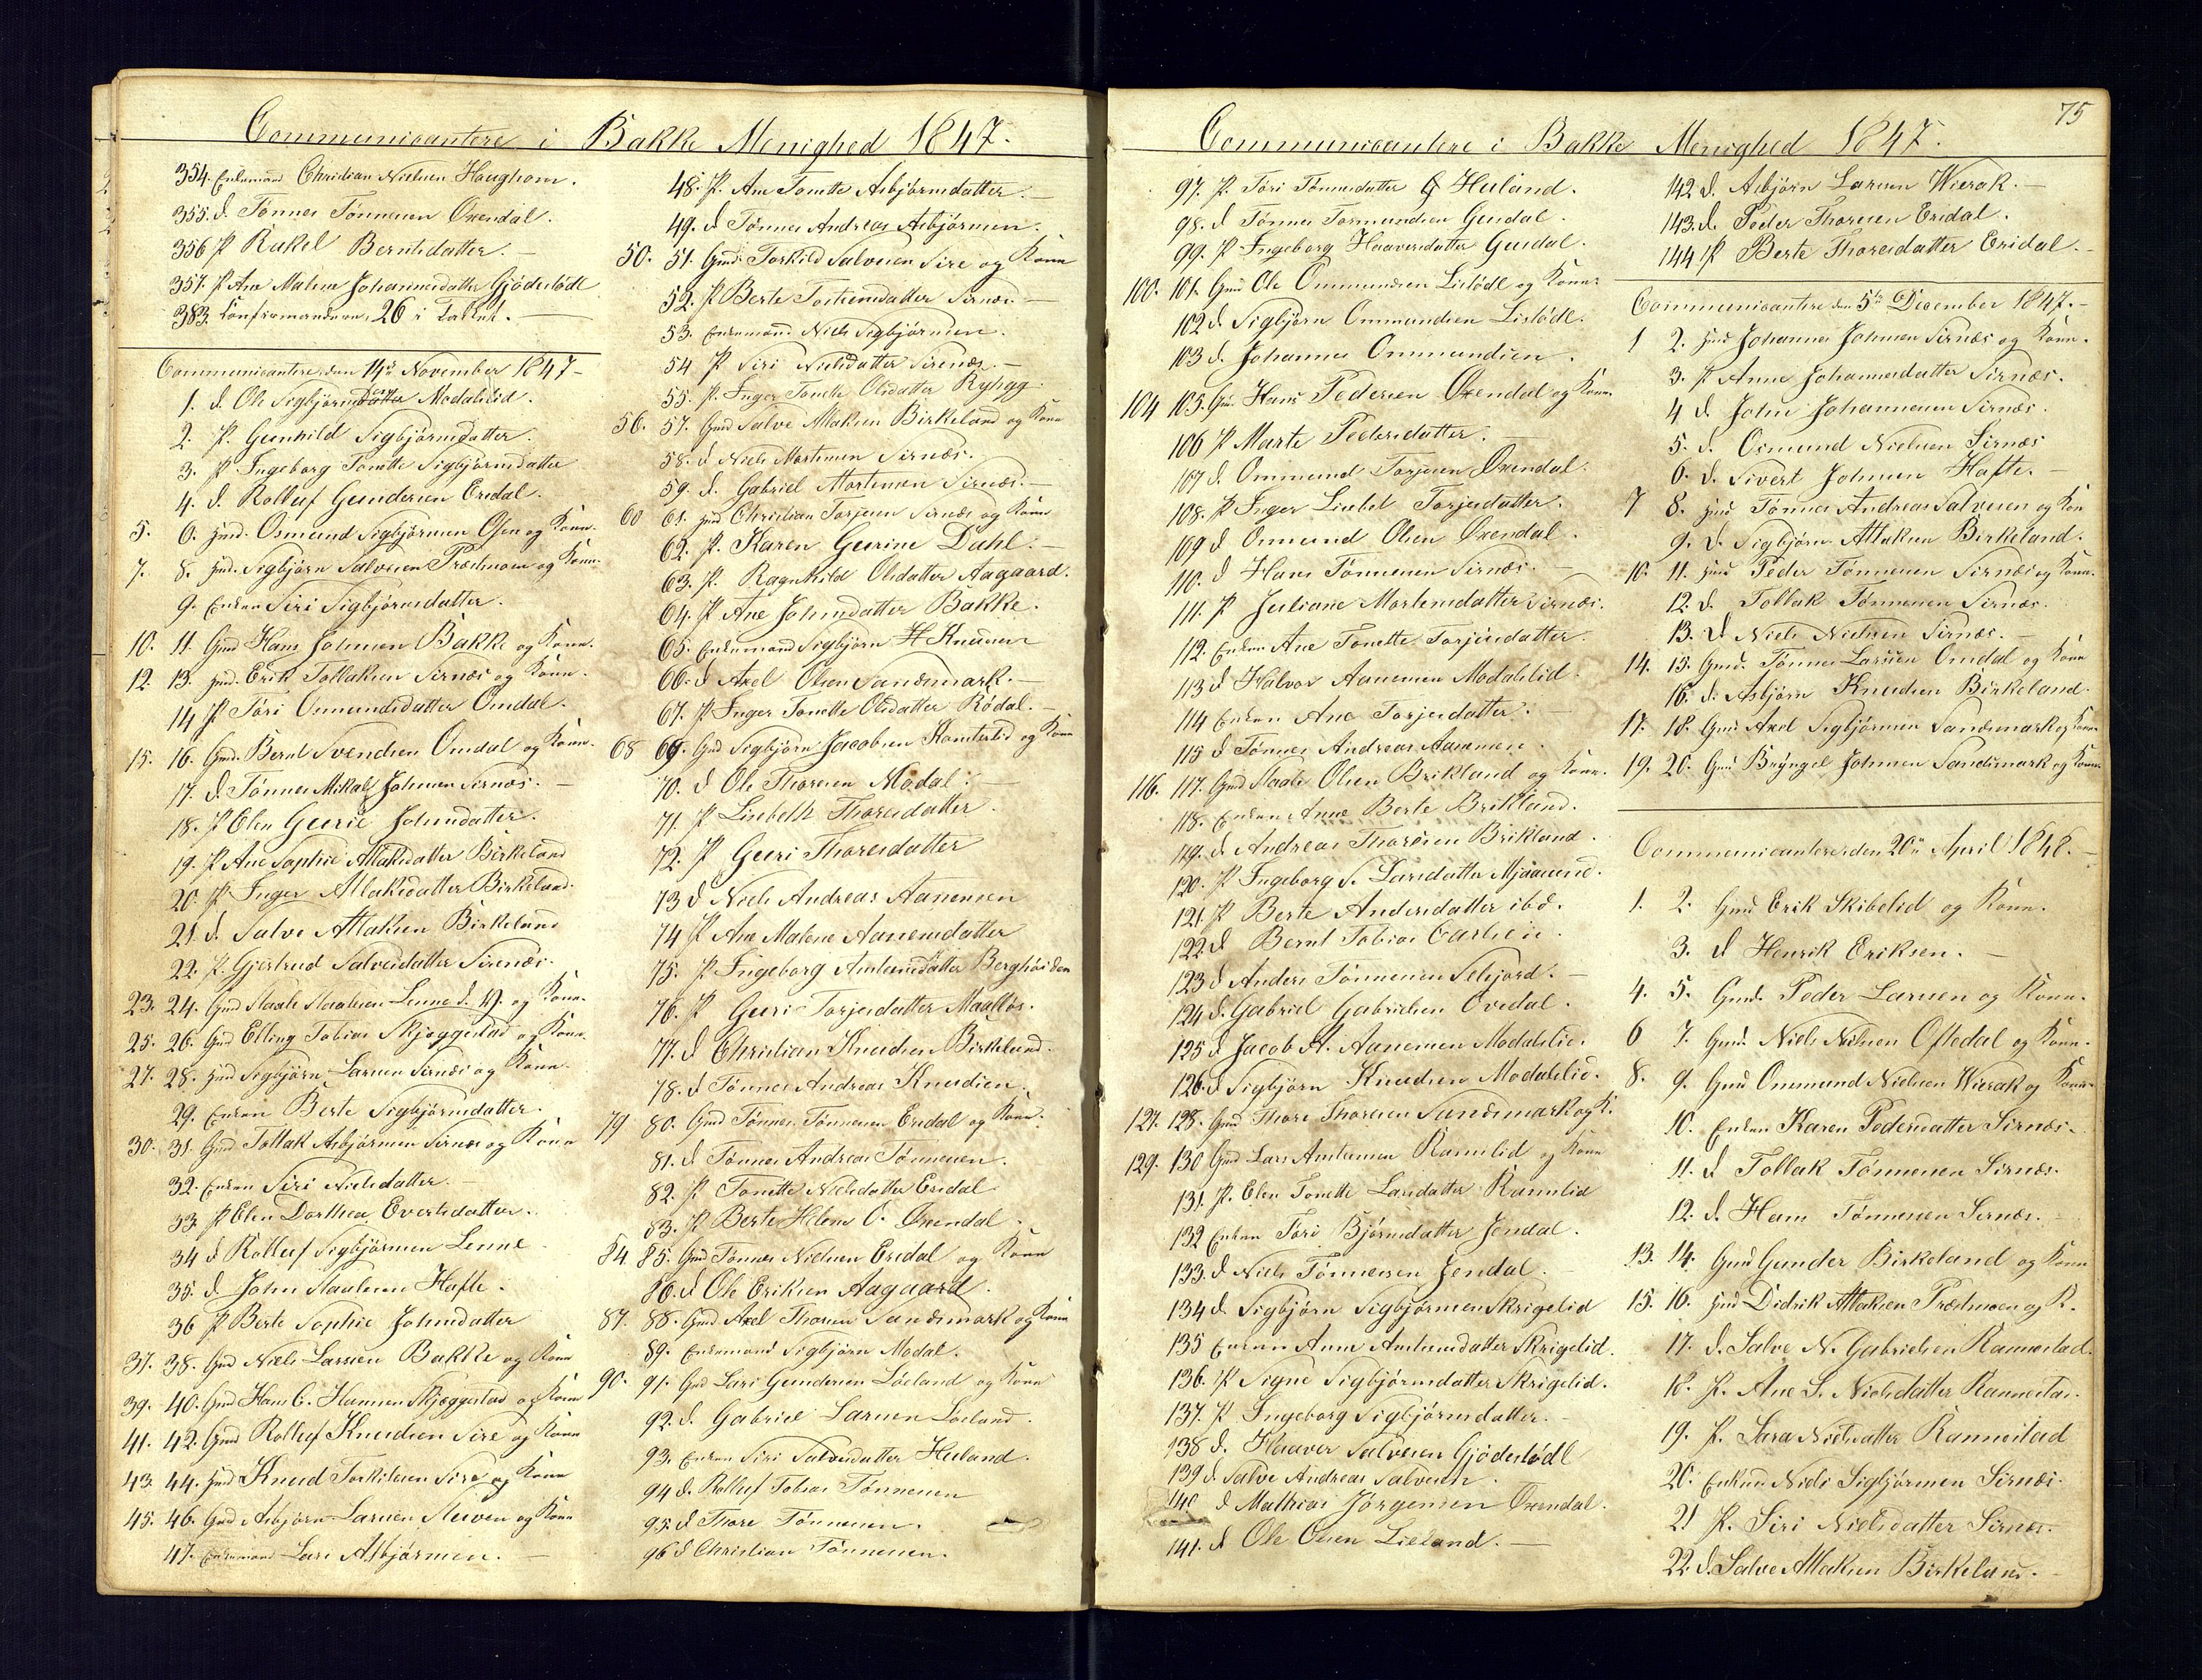 Communicantere i Bakke Menighed 1847.
354. Enkemand Christian Nielsen Haughom.
355. d. Tønnes Tønnesen Øxendal.
356 P Rakel Berntsdatter.
357. P Ane Malene Johannesdatter Gjødestødl
383. Konfirmanderne, 26 i Tallet.
Communicantere den 14de November 1847-
1. d. Ole Sigbjørnsdatter sen Modalslid.
2. P. Gunhild Sigbjørnsdatter.
3. P. Ingeborg Tonette Sigbjørnsdatter
4. d. Rolluf Gundersen Eredal.
5. 6. Hmd. Osmund Sigbjørnsen Osen og Kone.
7. 8. Hmd. Sigbjørn Salvesen Prestmoen og Kone.
9. Enken Siri Sigbjørnsdatter.
10. 11. Gmd Hans Johnsen Bakke og Kone.
12. 13. Hmd. Erik Tollaksen Sirnæs og Kone.
14 P Tøri Osmundsdatter Omdal.
15. 16. Gmd. Bernt Svendsen Omdal og Kone.
17. d. Tønnes Mikal Johnsen Sirnæs.
18. P Elen Gurie Johnsdatter.
19. P Ane Sophie Atlaksdatter Birkeland
20. P Inger Atlaksdatter Birkeland.
21 d. Salve Atlaksen Birkeland
22. P. Gjertrud Salvesdatter Sirenæs.
23. 24. Gmd Staale Staalesen Lenne d. y. og Kone.
25. 26. Gmd Elling Tobias Skjeggestad og Kone.
27. 28. Hmd Sigbjørn Larsen Sirnæs og Kone.
29. Enken Berte Sigbjørnsdatter.
30. 31. Gmd Tollak Asbjørnsen Sirnæs og Kone
32. Enken Siri Nielsdatter.
33. P Elen Dorthea Evertsdatter.
34 d Rolluf Sigbjørnsen Lenne
35. d John Staalesen Hafte.
36 P Berte Sophie Johnsdatter
37. 38. Gmd Niels Larssen Bakke og Kone
39. 40. Gmd Hans C. Hansen Skjeggestad og Kone
41. 42. Gmd Rolluf Knudsen Sire og Kone
43. 44. Hmd Knud Torkildsen Sire og Kone
45. 46. Gmd Asbjørn Larsen Steiven og Kone
47. Enkemand Lars Asbjørnsen.
48. P. Ane Tonette Asbjørnsdatter.
49. d Tønnes Andreas Asbjørnsen.
50. 51. Gmd. Torkild Salvesen Sire og Kone
52. P Berte Torkensdatter Sirnæs.
53. Enkemand Niels Sigbjørnsen.
54 P Siri Nielsdatter Sirenæs.
55. P. Inger Tonette Olsdatter Ryhgg.
56. 57. Gmd Salve Atlaksen Birkeland og Kone
58. d Niels Mortensen Sirnæs.
59. d. Gabriel Mortensen Sirnæs.
60 61. Hmd Christian Torjesen Sirnæs og Kone
62. P. Karen Gurine Dahl.
63. P. Ragnhild Olsdatter Aagaard.
64. P Ane Johnsdatter Bakke.
65. Enkemand Sigbjørn H Knudsen
66. d Axel Olsen Sandsmark.
67. P Inger Tonette Olsdatter Rødal.
68 69. Gmd Sigbjørn Jacobsen Kvinterlid og Kone
70. d Ole Thoresen Modal.
71. P Lisebeth Thoresdatter.
72. P Guri Thoresdatter
73 d Niels Andreas Aanensen
74 P Ane Malene Aanensdatter
75. P Ingeborg Amtsensdatter Berghoiden
76. P Guri Torjesdatter Maalløs.
77. d Christian Knudsen Birkeland.
78. d Tønnes Andreas Knudsen.
79 80. Gmd Tønnes Tønnesen Eredal og Kone.
81. d Tønnes Andreas Tønnesen.
82. P Tonette Nielsdatter Eredal
83. P Berte Helene O. Øxendal.
84. 85. Gmd Tønnes Nielsen Eredal og Kone
86. d Ole Eriksen Aagaard.
87. 88. Gmd Axel Thoresen Sandsmark og Kone
89. Enkemand Sigbjørn Modal.
90. 91. Gmd Lars Gundersen Løeland og Kone
92. d. Gabriel Larsen Løeland.
93. Enken Siri Salvesdatter Huland.
94 d. Rolluf Tobias Tønnesen
95. d Thore Tønnesen.
96 d Christian Tønnesen.
75
Communicantere i Bakke Menighed 1847.
97. P. Tøri Tønnesdatter Huland.
98. d Tønnes Tormundsen Gusdal.
99. P Ingeborg Haaversdatter Gusdal.
100. 101. Gmd Ole Ommundsen Listødl og Kone.
102 d. Sigbjørn Ommundsen Listødl.
103 d. Johannes Ommundsen.
104 105. Gm. Hans Pedersen Øxendal og Kone.
106 P Marte Pedersdatter.
107 d Ommund Torjesen Øxendal.
108. P Inger Lisebet Torjesdatter.
109 d Ommund Olsen Øxendal.
110. d Hans Tønnesen Sirnæs.
111. P Juliane Mortensdatter Sirnæs.
112. Enken Ane Tonette Torjesdatter.
113 d Halvor Aanensen Modalslid.
114 Enken Ane Torjesdatter.
115 d Tønnes Andreas Aanensen.
116. 117. Gmd Staale Olsen Brikland og Kone.
118. Enken Anne Berte Brikland.
119. d. Andreas Thoresen Brikland.
120. P Ingeborg S. Larsdatter Mjaasund.
121. P Berte Andersdatter ibd.
122 d Bernt Tobias Carlsen.
123 d Anders Tønnesen Selsjord.
124 d. Gabriel Gabrielsen Ovedal.
125 d Jacob A. Aanensen Modalslid.
126 d Sigbjørn Knudsen Modalslid.
127. 128. Gmd Thore Thoresen Sandsmark og K.
129. 130 Gmd Lars Amtsensen Ramslid og Kone
131 P. Elen Tonette Larsdatter Ramslid
132 Enken Tøri Bjørnsdatter Jendal.
133. d Niels Tønnesen Jendal.
134 d. Sigbjørn Sigbjørnsen Skrigelid
135 Enken Anne Amtsensdatter Skrigelid.
136. P Signe Sigbjørnsdatter Skrigelid.
137. P Ingeborg Sigbjørnsdatter.
138 d. Haaver Salvesen Gjødestødl
139 d. Salve Andreas Salvesen.
140 d Mathias Jørgensen Øxendal.
141. d Ole Olsen Lieland.
142 d. Asbjørn Larsen Wierak.
143. d. Peder Thoresen Eredal.
144 P Berte Thoresdatter Eredal.
Communicantere den 5te December 1847.
1 2. Hmd Johannes Johnsen Sirnæs og Kone.
3. P Anne Johannesdatter Sirnæs.
4 d. John Johannessen Sirnæs.
5. d. Osmund Nielsen Sirnæs
6. d. Sivert Johnsen Hafte.
7 8. Hmd Tønnes Andreas Salvesen og Kone
9. d. Sigbjørn Atlaksen Birkeland.
10. 11. Hmd Peder Tønnesen Sirnæs og Kone.
12. d. Tollak Tønnesen Sirnæs.
13. d Niels Nielsen Sirnæs.
14. 15. Gmd. Tønnes Larssen Omdal og Kone
16. d. Asbjørn Knudsen Birkeland.
17. 18. Gmd Axel Sigbjørnsen Sandsmark og Kone
19. 20. Gmd Bryngel Johnsen Sandsmark og Kone
Communicantere den 20de April 1848.
1. 2. Gmd Erik Skibelid og Kone.
3. d Henrik Eriksen.
4. 5. Gmd. Peder Larsen og Kone.
6 7. Gmd. Niels Nielsen Oftedal og Kone.
8. 9. Gmd Ommund Nielsen Wierak og Kone
10. Enken Karen Pedersdatter Sirnæs.
11. d Tollak Tønnesen Sirnæs.
12. d. Hans Tønnesen Sirnæs.
13. 14. Gmd Gunder Birkeland og Kone
15. 16. Hmd Didrik Atlaksen Prestmoen og K.
17. d. Salve N. Gabrielsen Rannestad.
18. P. Ane S. Nielsdatter Rannestad.
19. P. Sara Nielsdatter Rannestad
20. Enkemd Niels Sigbjørnsen Sirnæs.
21 P. Siri Nielsdatter Sirnæs.
22. d. Salve Atlaksen Birkeland.